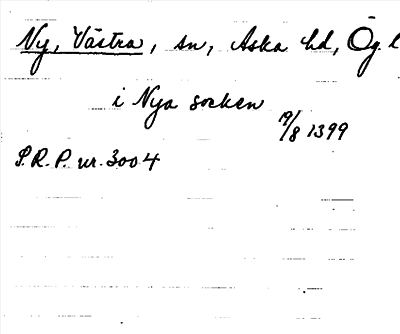 Ny, Västra, sn, Aska hd, Ög. l
i Nya socken
19/8 1399
S.R.P. nr. 3004